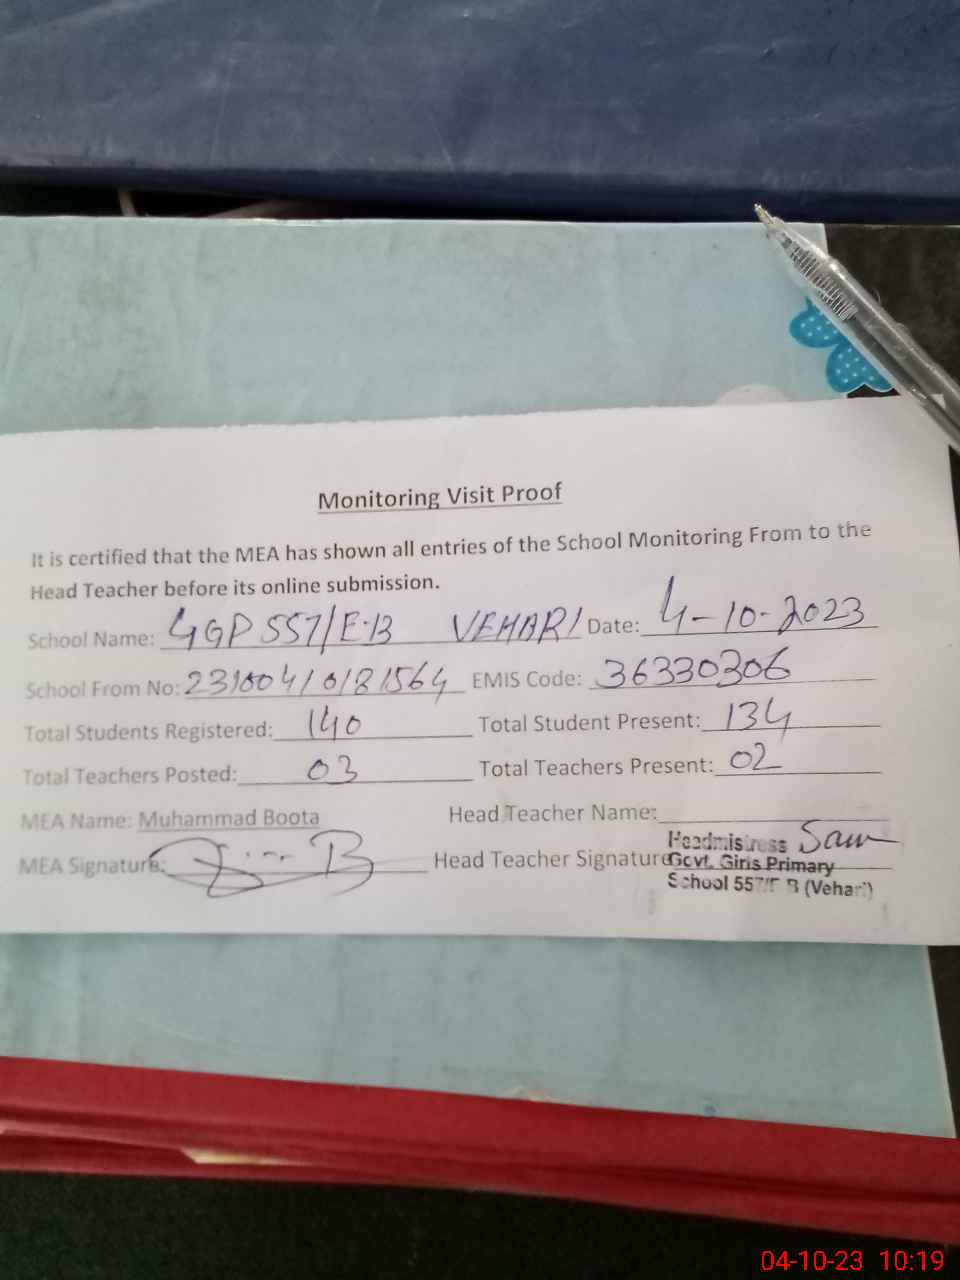 Monitoring Visit Proof
It is certified that the MEA has shown all entries of the School Monitoring From to the
Head Teacher before its online submission.
School Name: GGP 557/E-B VEHARI Date: 4-10-2023
School From No: 23100410181564 EMIS Code: 36330306
Total Students Registered: 140 Total Student Present: 134
Total Teachers Posted: 03 Total Teachers Present: 02
MEA Name: Muhammad Boota Head Teacher Name:
MEA Signature: Head Teacher Signature
Headmistress
Govt. Girls Primary
School 557/E B (Vehari)
04-10-23 10:19